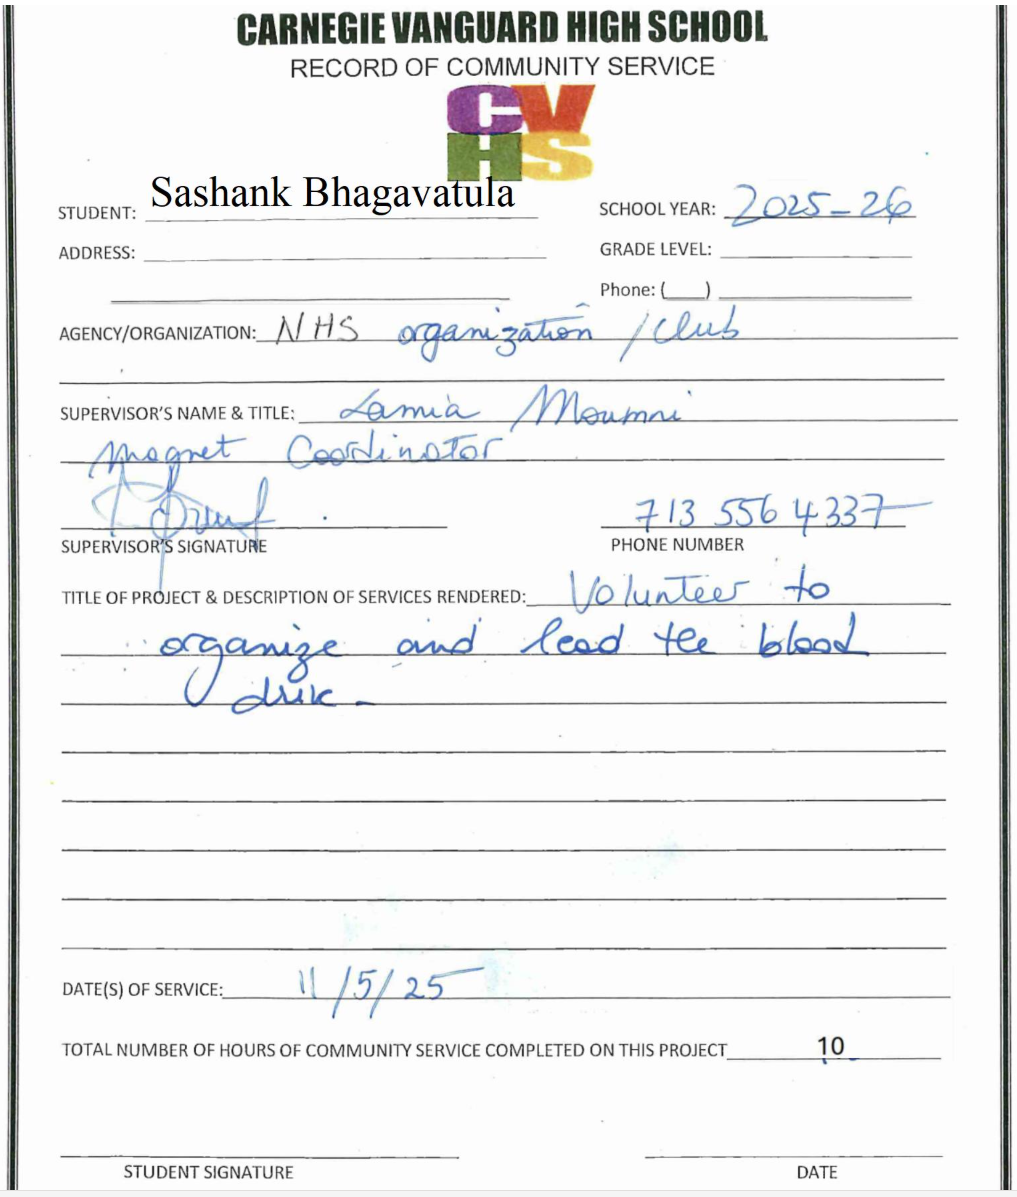 CARNEGIE VANGUARD HIGH SCHOOL
RECORD OF COMMUNITY SERVICE
CV
HS
STUDENT: Sashank Bhagavatula
SCHOOL YEAR: 2025-26
ADDRESS:
GRADE LEVEL:
Phone: (___)
AGENCY/ORGANIZATION: NHS organization / club
SUPERVISOR'S NAME & TITLE: Lamia Moumni
Magnet Coordinator
713 556 4337
SUPERVISOR'S SIGNATURE
PHONE NUMBER
TITLE OF PROJECT & DESCRIPTION OF SERVICES RENDERED: Volunteer to
organize and lead the blood
drive-
DATE(S) OF SERVICE: 11/5/25
TOTAL NUMBER OF HOURS OF COMMUNITY SERVICE COMPLETED ON THIS PROJECT 10
STUDENT SIGNATURE
DATE